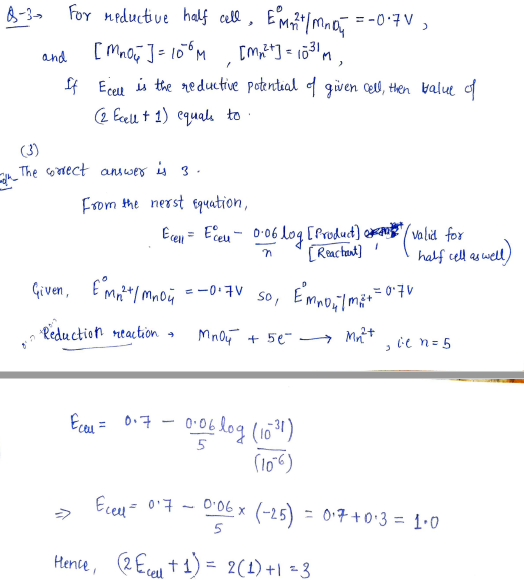 Q-3→ For reductive half cell, E°Mn²⁺/MnO₄⁻ = -0.7V,
and [MnO₄⁻] = 10⁻⁶M, [Mn²⁺] = 10⁻³¹M,
If Ecell is the reductive potential of given cell, then value of
(2 Ecell + 1) equals to .
(3)
Solⁿ- The correct answer is 3.
From the nerst equation,
Ecell = E°cell - 0.06/n log [Product]/[Reactant], (valid for half cell as well)
Given, E°Mn²⁺/MnO₄⁻ = -0.7V so, E°MnO₄⁻/Mn²⁺ = 0.7V
∴ Reduction reaction → MnO₄⁻ + 5e⁻ → Mn²⁺, i.e n=5
Ecell = 0.7 - 0.06/5 log (10⁻³¹)/(10⁻⁶)
⇒ Ecell = 0.7 - 0.06/5 × (-25) = 0.7+0.3 = 1.0
Hence, (2Ecell + 1) = 2(1)+1 = 3